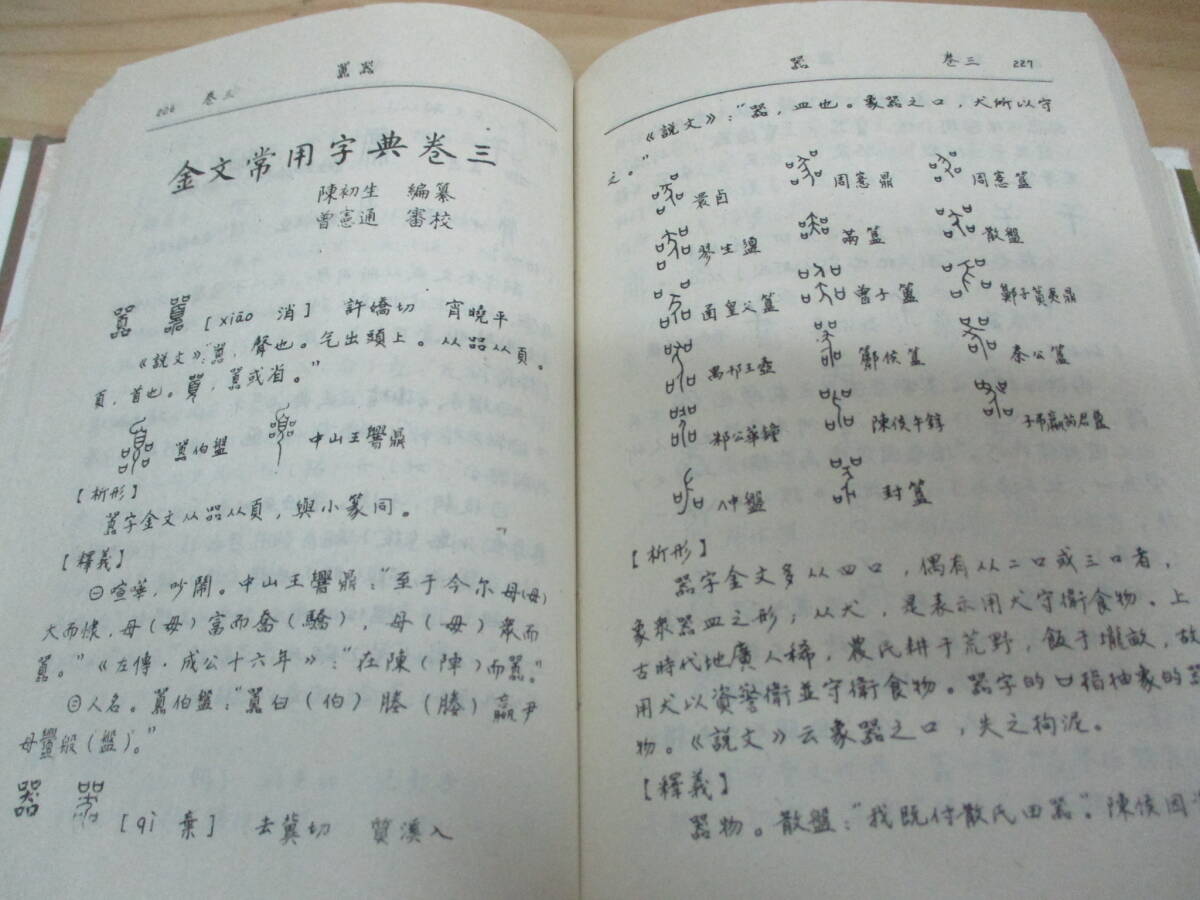 囂器
226 卷三
金文常用字典卷三
陳初生 編纂
曾憲通 審校
囂 [xiāo 消] 許嬌切 宵曉平
《說文》:"囂,聲也。气出頭上。从㗊从頁。
頁,首也。
囂或省。"
囂伯盤 中山王響鼎
[析形]
囂字金文从㗊从頁,與小篆同。
[釋義]
㊀喧嘩,吵鬧。中山王響鼎:"至于今尔母(毋)
大而㥷,母(毋)富而喬(驕),母(毋)衆而
囂。"《左傳·成公十六年》:"在陳(陣)而囂。"
㊁人名。囂伯盤:"囂白(伯)媵(媵)嬴尹
母般(盤)。"
器 [qì 棄] 去冀切 質溪入
器 卷三 227
《說文》:"器,皿也。象器之口,犬所以守
之。"
卣 周憲鼎 周憲簋
生盨 簋 散盤
函皇父簋 曾子簋
禺邗王壺 鄭侯簋 秦公簋
邾公華鐘 陳侯午錞
仲盤 封簋
[析形]
器字金文多从四口,偶有从二口或三口者,
象衆器皿之形,从犬,是表示用犬守衛食物。上
古時代地廣人稀,農民耕于荒野,飯于壠畝,故
用犬以資警衛並守衛食物。器字的口指抽象的器
物。《說文》云象器之口,失之拘泥。
[釋義]
器物。散盤:"我既付散氏田器。"陳侯因